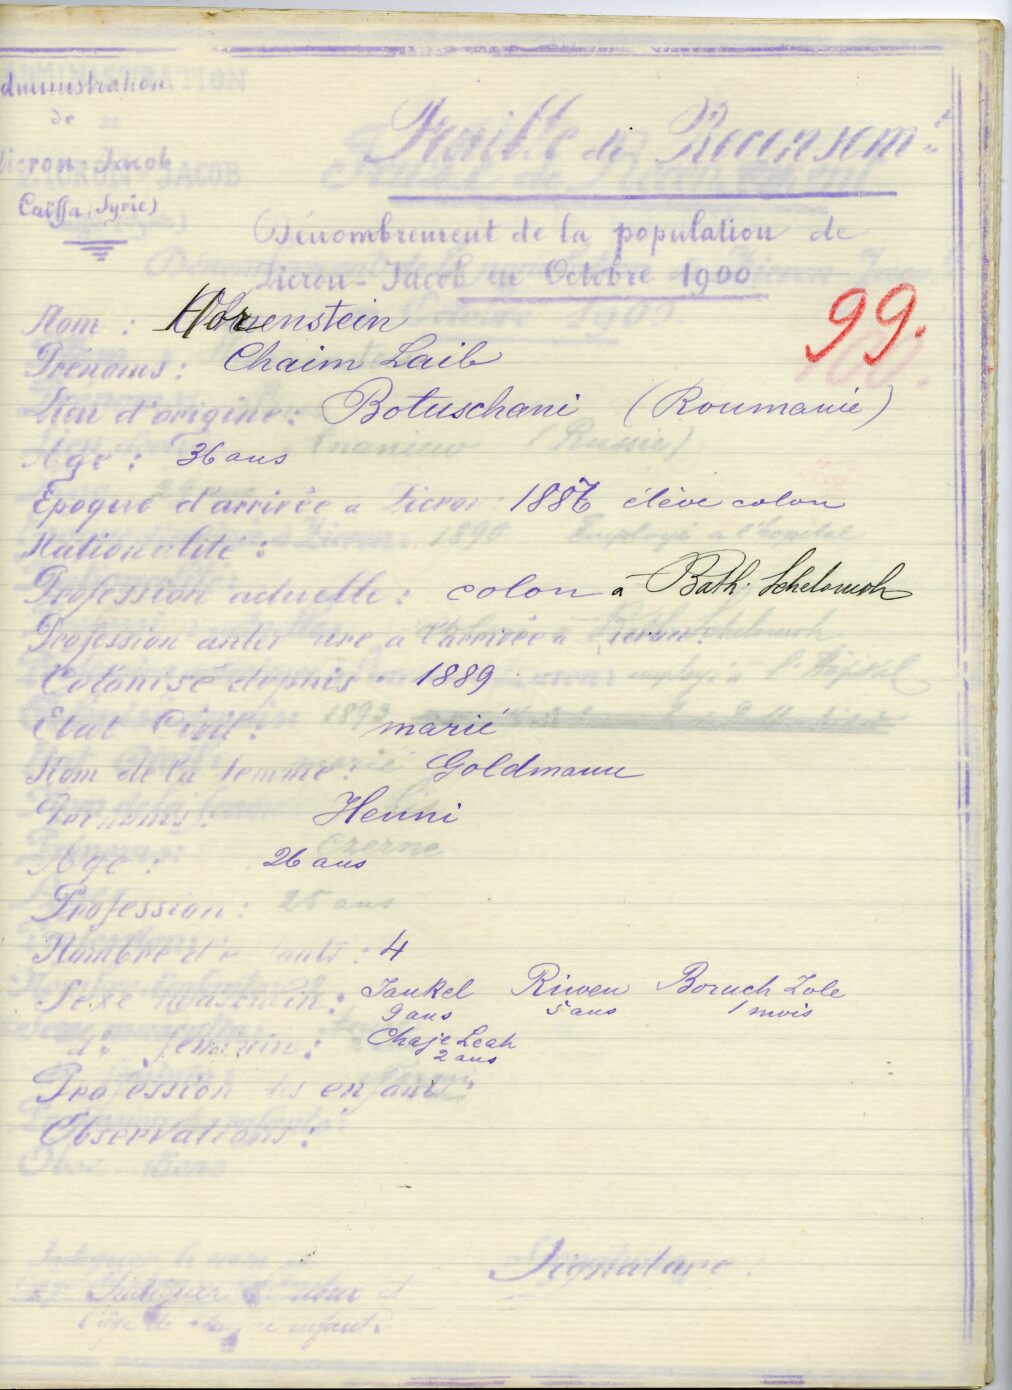 Administration
de
Zicron Jacob
Caïffa (Syrie)
Feuille de Recensemt
Dénombrement de la population de
Zicron-Jacob en Octobre 1900
99.
Nom : Horenstein
Prénoms : Chaim Laib
Lieu d'origine : Botuschani (Roumanie)
Age : 36 ans
Epoque d'arrivée a Zicron 1887 élève colon
Nationalité :
Profession actuelle : colon à Bath. Schelomoh
Profession antérieure a l'arrivée a Zicron :
Colonisé depuis 1889
Etat Civil : marié
Nom de la femme : Goldmann
Prénoms : Henni
Age : 26 ans
Profession :
Nombre d'enfants : 4
Sexe masculin : Jankel Riwen Boruch Zole
9 ans 5 ans 1 mois
do féminin : Chaje Leah
2 ans
Profession des enfants :
Observations :
Signature
(*) Indiquer le nom et
l'âge de chaque enfant.